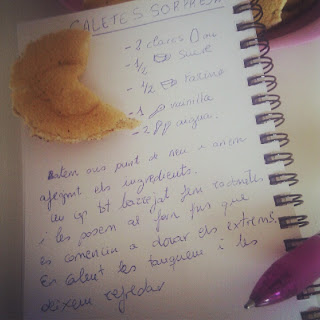 GALETES SORPRESA
- 2 clares D'ou
- 1/2 sucre
- 1/2 farina
- 1 vainilla
- 2 aigua.
punt de neu i anem
afegint els ingredients.
Un cop tot barrejat fem rodonetes
i les posem al forn fins que
es comencin a daurar els extrems.
En calent les tanquem i les
deixem refredar